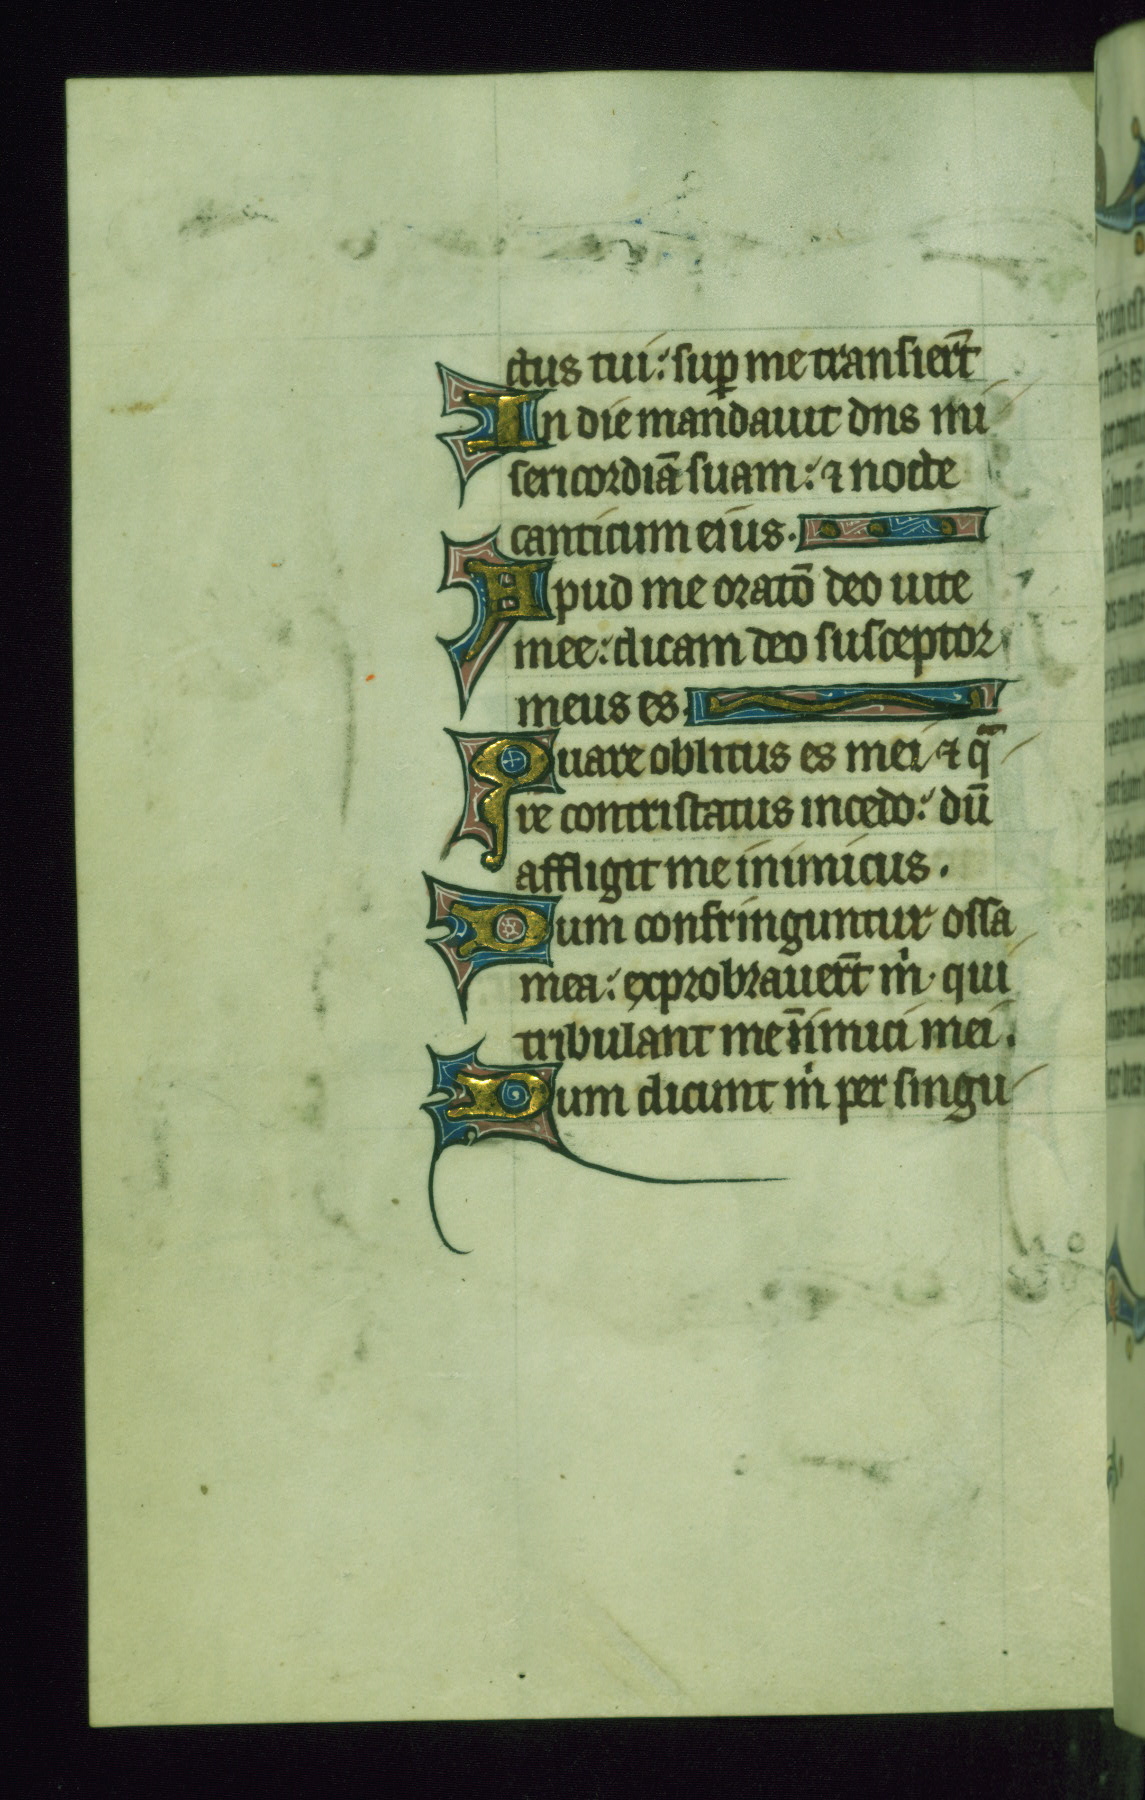 ctus tui: sup̱ me transier̄t
In die mandauit dn̄s mi
sericordiā suam: ⁊ nocte
canticum eius.
Apud me orat̄o deo uite
mee: dicam deo susceptor
meus es.
Quare oblitus es mei ⁊ qͣ
re contristatus incedo: dū
affligit me inimicus.
Dum confringuntur ossa
mea: exprobrauer̄t m̍ qui
tribulant me īnimici mei.
Dum dicunt m̍ per singu